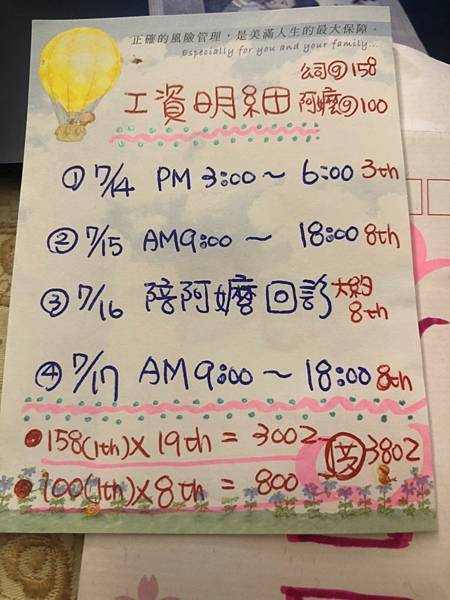 正確的風險管理，是美滿人生的最大保障．
Especially for you and your family...
公司@158
工資明細 阿嬤@100
① 7/14 PM 3:00～ 6:00 3th
② 7/15 AM9:00～ 18:00 8th
③ 7/16 陪阿嬤回診 大約 8th
④ 7/17 AM9:00～18:00 8th
158(1th)X 19th = 3002
100(1th)X 8th = 800
3802